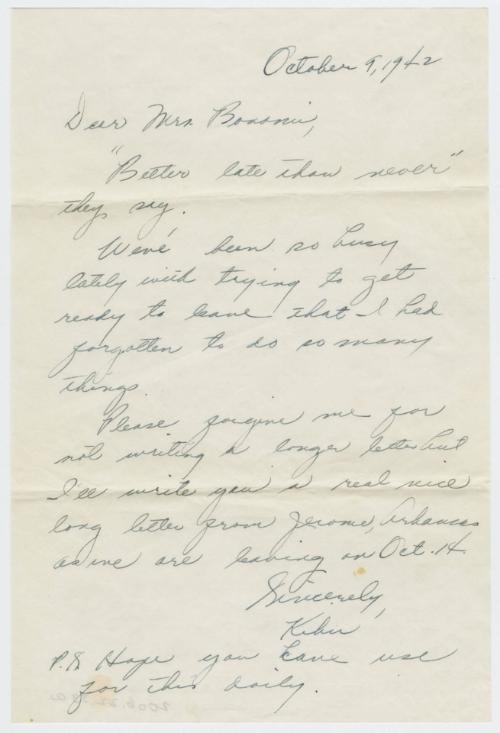 October 9, 1942
Dear Mrs. Bonomi,
"Better late than never"
they say.
We've been so busy
lately with trying to get
ready to leave that I had
forgotten to do so many
things.
Please forgive me for
not writing a longer letter but
I'll write you a real nice
long letter from Jerome, Arkansas
as we are leaving on Oct. 14
Sincerely,
P.S Hope you have use
for this doily.